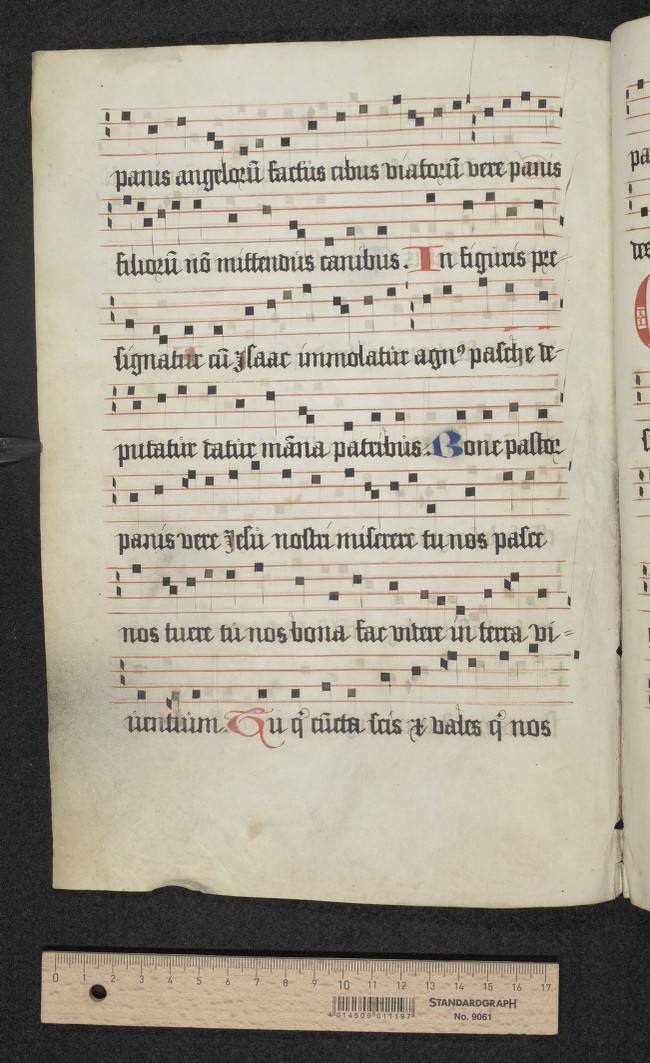 panis angeloꝝ̄ factus cibus viatoꝝ̄ vere panis
filioꝝ̄ nō mittendus canibus. In figuris pre⸗
signatur cū ysaac immolatur agnꝰ pasche de⸗
putatur datur māna patribus. Bone pastor
panis vere Jesu nostri miserere tu nos pasce
nos tuere tu nos bona fac videre in terra vi⸗
uentium. Tu q̄ cūcta scis ⁊ vales q̄ nos
pa
des
0 1 2 3 4 5 6 7 8 9 10 11 12 13 14 15 16 17
STANDARDGRAPH
No. 9061
4 014509 011197